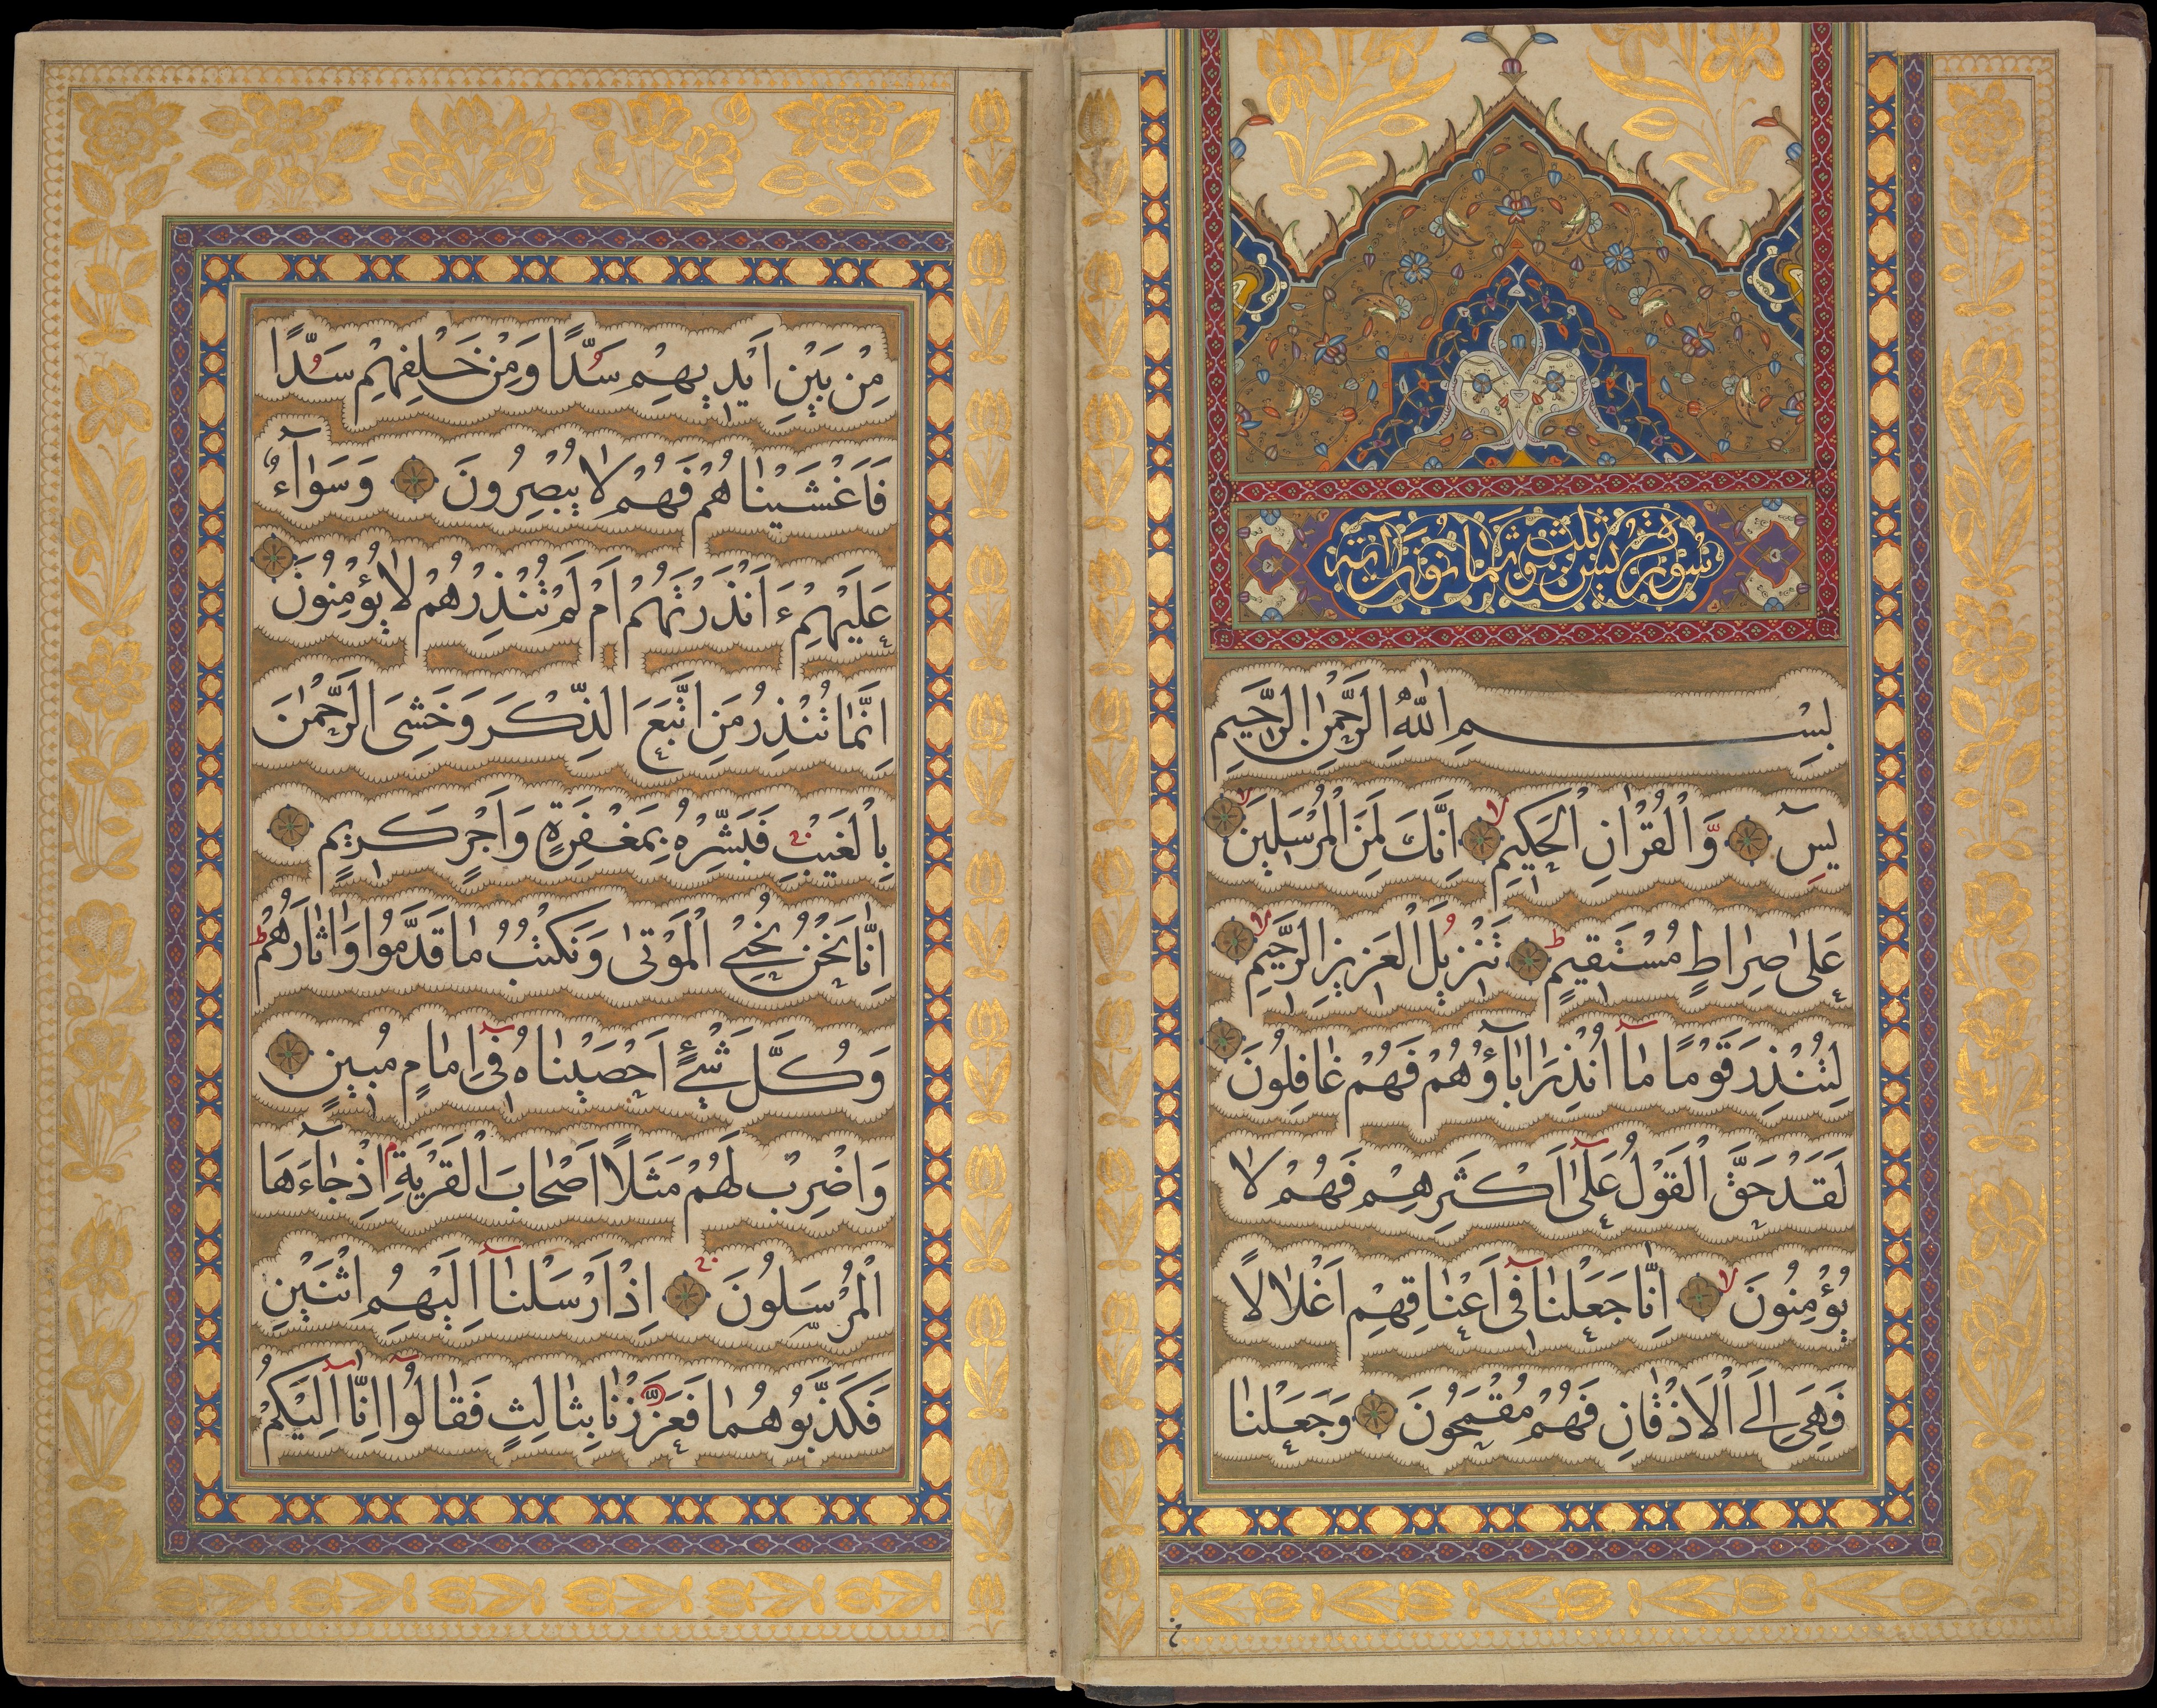 سورة يس ثلث و ثمانون آية
بِسْمِ اللّٰهِ الرَّحْمٰنِ الرَّحيمِ
يسٓ وَالْقُرْاٰنِ الْحَكيمِ اِنَّكَ لَمِنَ الْمُرْسَلينَ
عَلٰى صِرٰاطٍ مُسْتَقيمٍ تَنْزيلَ الْعَزيزِ الرَّحيمِ
لِتُنْذِرَ قَوْمًا مٰٓا اُنْذِرَ اٰبٰٓاؤُهُمْ فَهُمْ غٰافِلُونَ
لَقَدْ حَقَّ الْقَوْلُ عَلٰٓى اَكْثَرِهِمْ فَهُمْ لٰا
يُؤْمِنُونَ اِنّٰا جَعَلْنٰا فٓى اَعْنٰاقِهِمْ اَغْلٰالًا
فَهِىَ اِلَى الْاَذْقٰانِ فَهُمْ مُقْمَحُونَ وَجَعَلْنٰا
مِنْ بَيْنِ اَيْديهِمْ سَدًّا وَمِنْ خَلْفِهِمْ سَدًّا
فَاَغْشَيْنٰاهُمْ فَهُمْ لٰا يُبْصِرُونَ وَسَوٰٓاءٌ
عَلَيْهِمْ ءَاَنْذَرْتَهُمْ اَمْ لَمْ تُنْذِرْهُمْ لٰا يُؤْمِنُونَ
اِنَّمٰا تُنْذِرُ مَنِ اتَّبَعَ الذِّكْرَ وَخَشِىَ الرَّحْمٰنَ
بِالْغَيْبِ فَبَشِّرْهُ بِمَغْفِرَةٍ وَاَجْرٍ كَريمٍ
اِنّٰا نَحْنُ نُحْيِى الْمَوْتٰى وَنَكْتُبُ مٰا قَدَّمُوا وَاٰثٰارَهُمْ
وَكُلَّ شَىْءٍ اَحْصَيْنٰاهُ فٓى اِمٰامٍ مُبينٍ
وَاضْرِبْ لَهُمْ مَثَلًا اَصْحٰابَ الْقَرْيَةِ اِذْ جٰٓاءَهَا
الْمُرْسَلُونَ اِذْ اَرْسَلْنٰٓا اِلَيْهِمُ اثْنَيْنِ
فَكَذَّبُوهُمٰا فَعَزَّزْنٰا بِثٰالِثٍ فَقٰالُوٓا اِنّٰٓا اِلَيْكُمْ